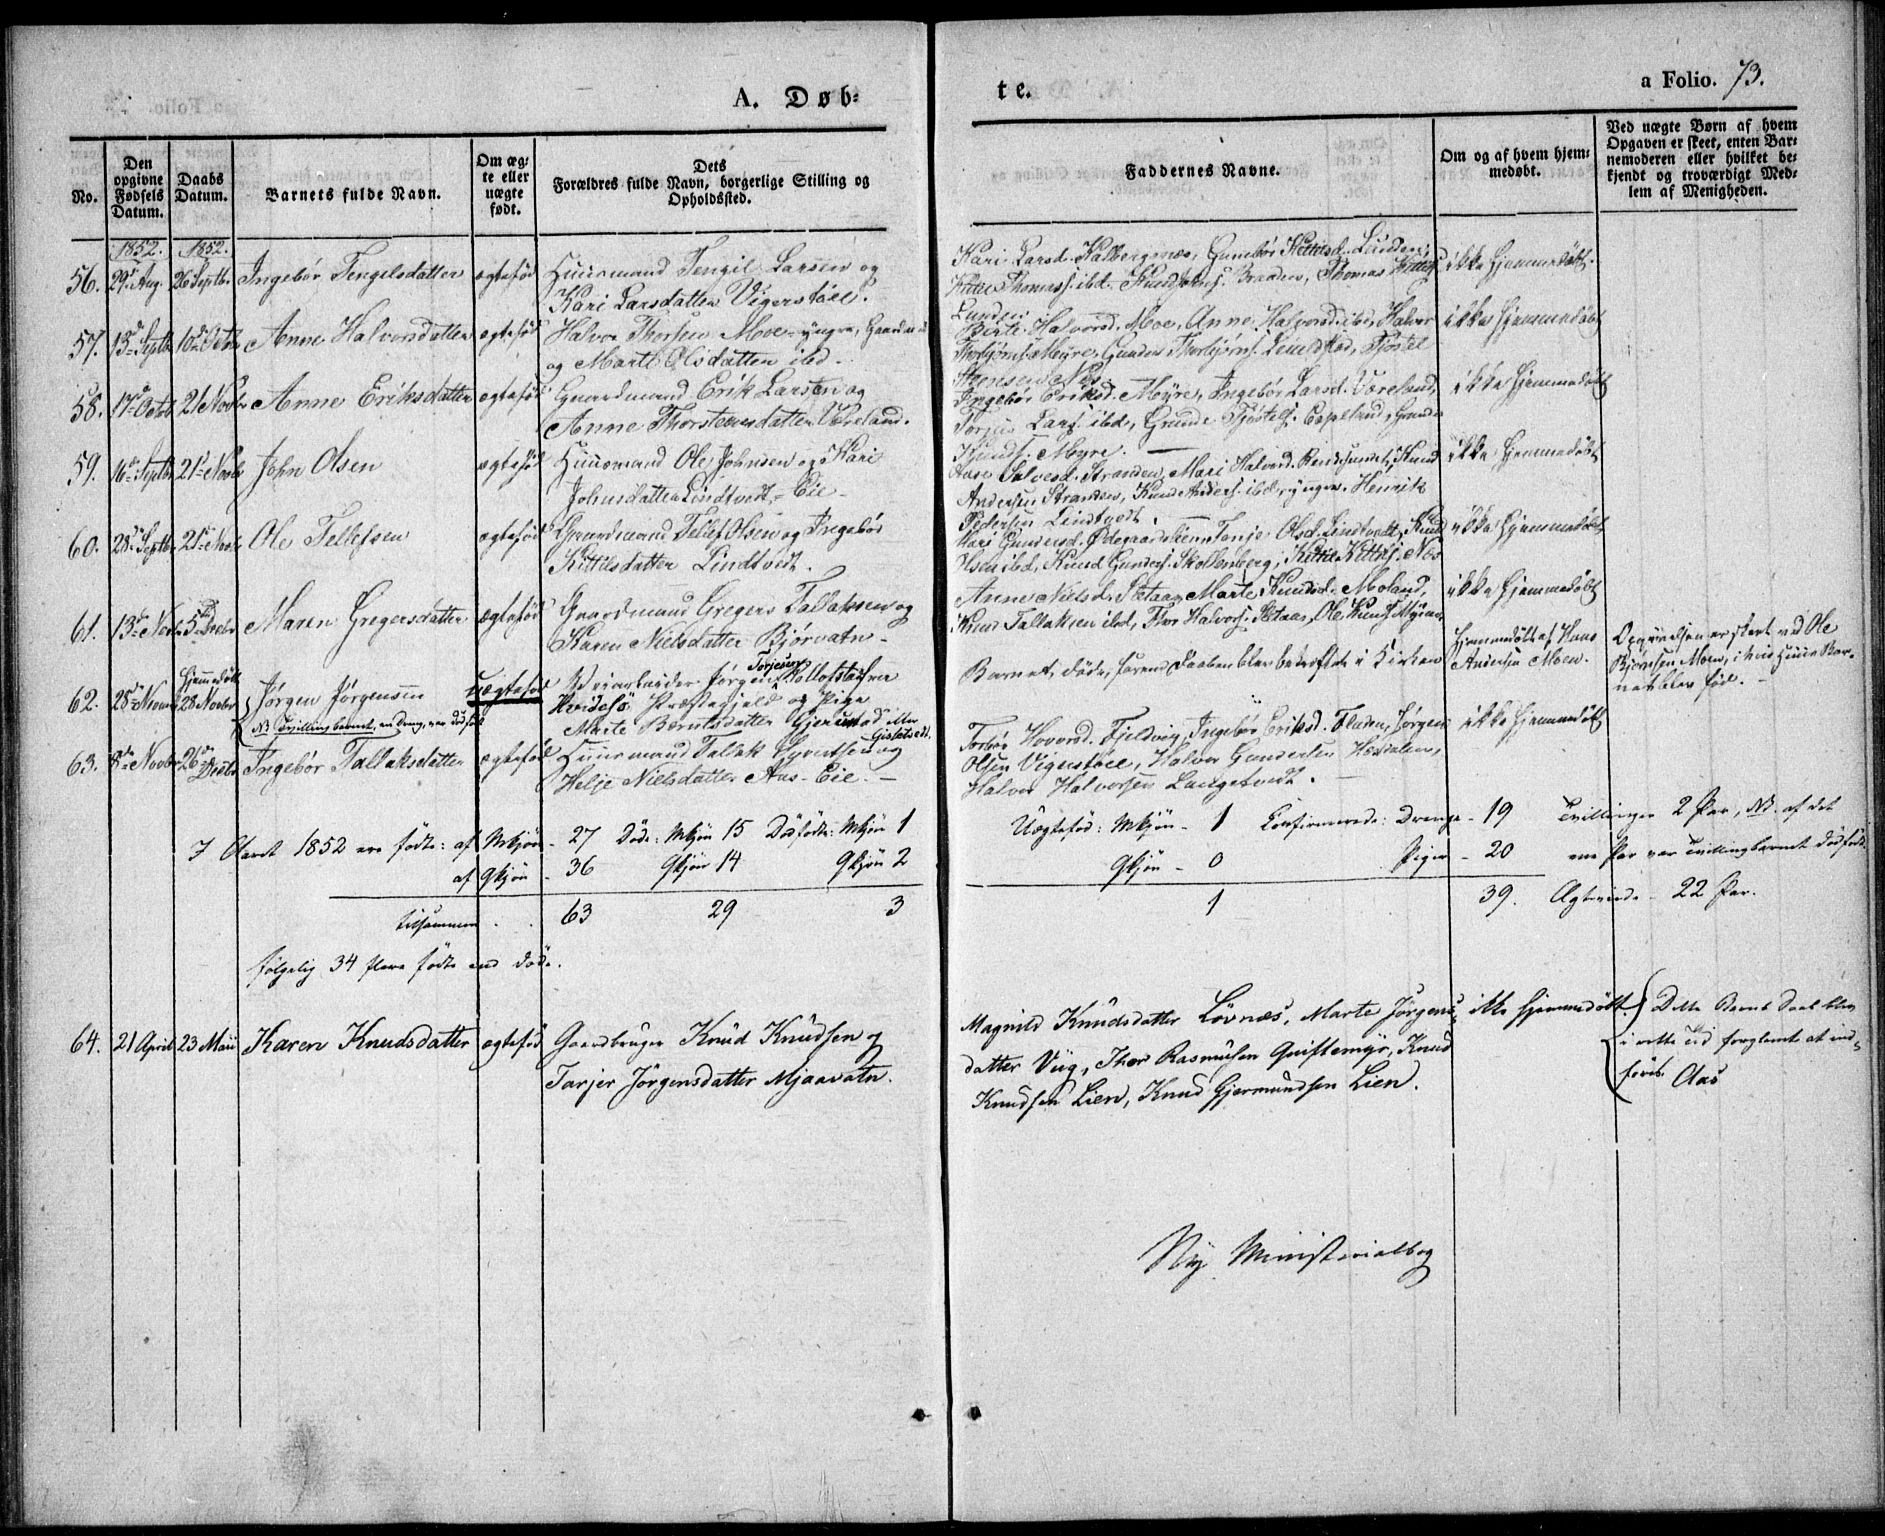 A. Døb=
te.
a Folio. 73.
No.
Den opgivne Fødsels Datum.
Daabs Datum.
Barnets fulde Navn.
Om æg= te eller uægte født.
Dets Forældres fulde Navn, borgerlige Stilling og Opholdssted.
Faddernes Navne.
Om og af hvem hjem= medøbt.
Ved uægte Børn af hvem Opgaven er skeet, enten Bar= nemoderen eller hvilket be= kjendt og troværdigt Med= lem af Menigheden.
1852. 1852.
56. 29de Aug. 26 Septbr. Ingebør Tengelsdatter ægtefød Huusmand Tengil Larsen og
Kari Larsdatter Vigerstøel.
Kari Larsd. Kalbergnæs, Gunbør Kittilsd. Lunden,
Kittil Thomass. ibd. Knud Johns. Braaden, Thomas Kittils.
Lunden
ikke hjemmedøbt
57. 13de Septbr 10de Octbr Anne Halvorsdatter ægtefød Halvor Thorsen Moe yngre, Gaardm.
og Marte Olsdatter ibd.
Birte Halvorsd. Moe, Anne Halvorsd. ibd, Halvor
Thorbjørns. Myre, Gunder Thorbjørns. Lindstad, Tjøstel
Steensen Næs
ikke hjemmedøbt
58. 17de Octob 21 Novbr Anne Eriksdatter ægtefød Gaardmand Erik Larsen og
Anne Thorstensdatter Væreland.
Ingebør Eriksd. Myre, Ingebør Larsd. Væreland,
Torjus Lars. ibd, Grunde Tjøstels. Espeland, Gunder
Knuds. Myre.
ikke hjemmedøbt
59. 16de Septbr 21de Novbr John Olsen ægtefød Huusmand Ole Johnsen og Kari
Johnsdatter Lindtvedt-Eie
Aase Salvesd. Stranden, Mari Halvorsd. Reiersundet, Knud
Andersen Stranden, Knud Anders. ibd yngre, Henrik
Pedersen Lindtvedt.
ikke hjemmedøbt
60. 28de Septbr 21de Novbr Ole Tellefsen ægtefød Gaardmand Tellef Olsen og Ingebør
Kittilsdatter Lindtvedt.
Mari Gundersd. Ødegaardskern, Tonje Olsd. Lindtvedt, Knud
Olsen ibd, Knud Gunders. Skollenberg, Kittil Kittils. Næs
ikke hjemmedøbt
61. 13de Novbr 5te Decbr Maren Gregersdatter ægtefød Gaardmand Gregers Tallaksen og
Karen Nielsdatter Bjørvatn
Anne Nielsd. Retaas, Marte Knudsd. Moland,
Knud Tallaksen ibd, Thor Halvors. Retaas, Ole Knuds. Myren
ikke hjemmedøbt
62. 28de Novbr Hjemmedøbt 28 Novbr Jørgen Jørgensen uægtefød Veiarbeider Jørgen Torjesen Rollofstad fra
NB Tvillingbarnet, en Dreng, var dødfødt
Hvidesø Præstegjeld og Pige
Marte Berntsdatter Gjerustad eller
Gjelstvedt.
Barnet døde, førend Daaben blev bekræftet i Kirken
Hjemmedøbt af Hans
Andersen Moen.
Opgivelsen er skeet ved Ole
Bjørnsen Moen, i hvis Huus Bar=
net blev fød.
63. 8de Novbr 26de Decbr Ingebør Tallaksdatter ægtefød Huusmand Tallak Gjeruldsen og
Helje Nielsdatter Aas-Eie.
Torbør Hovorsd. Fjeldvig, Ingebør Eriksd. Floden, Jørgen
Olsen Vigerstøel, Halvor Gundersen Hæsdalen,
Halvor Halvorsen Langetvedt.
ikke hjemmedøbt
I Aaret 1852 ere fødte: af Mkjøn - 27 Døde: Mkjøn 15 Dødfødte: Mkjøn 1
Uægtefød: Mkjøn - 1 Confirmerede: Drenge - 19 Tvillinger 2 Par, NB. af det
af Qkjøn - 36 Qkjøn 14 Qkjøn 2
Qkjøn - 0 Piger - 20 ene Par var Tvillingbarnet dødfødt
tilsammen . . 63 29 3
1 39. Ægteviede - 22 Par.
følgelig 34 flere fødte end døde.
64. 21 April 23 Maii Karen Knudsdatter ægtefød Gaardbruger Knud Knudsen og
Tarjer Jørgensdatter Mjaavatn.
Magnild Knudsdatter Løvnæs, Marte Jørgens=
datter Viig, Thor Rasmusen Qvistemyr, Knud
Knudsen Lien, Knud Gjermundsen Lien.
ikke hjemmedøbt.
Dette Barns Daab blev
i rette Tid forglemt at ind=
føres. Aas
Ny Ministerialbog